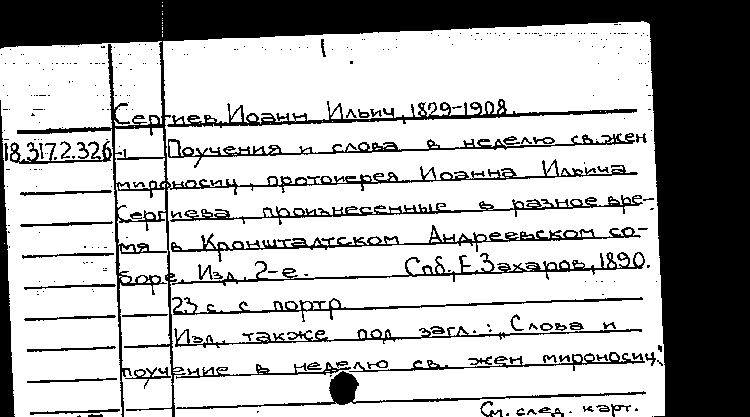 Сергиев, Иоанн Ильич, 1829-1908.
18.317.2.326 Поучения и слова в неделю св. жен
мироносиц, протоиерея Иоанна Ильича
Сергиева, произнесенные в разное вре-
мя в Кронштадтском Андреевском со-
боре. Изд. 2-е. Спб., Е. Захаров, 1890.
23 с. с портр
Изд. также под загл.: "Слова и
поучение в неделю св. жен мироносиц."
См. след. карт.